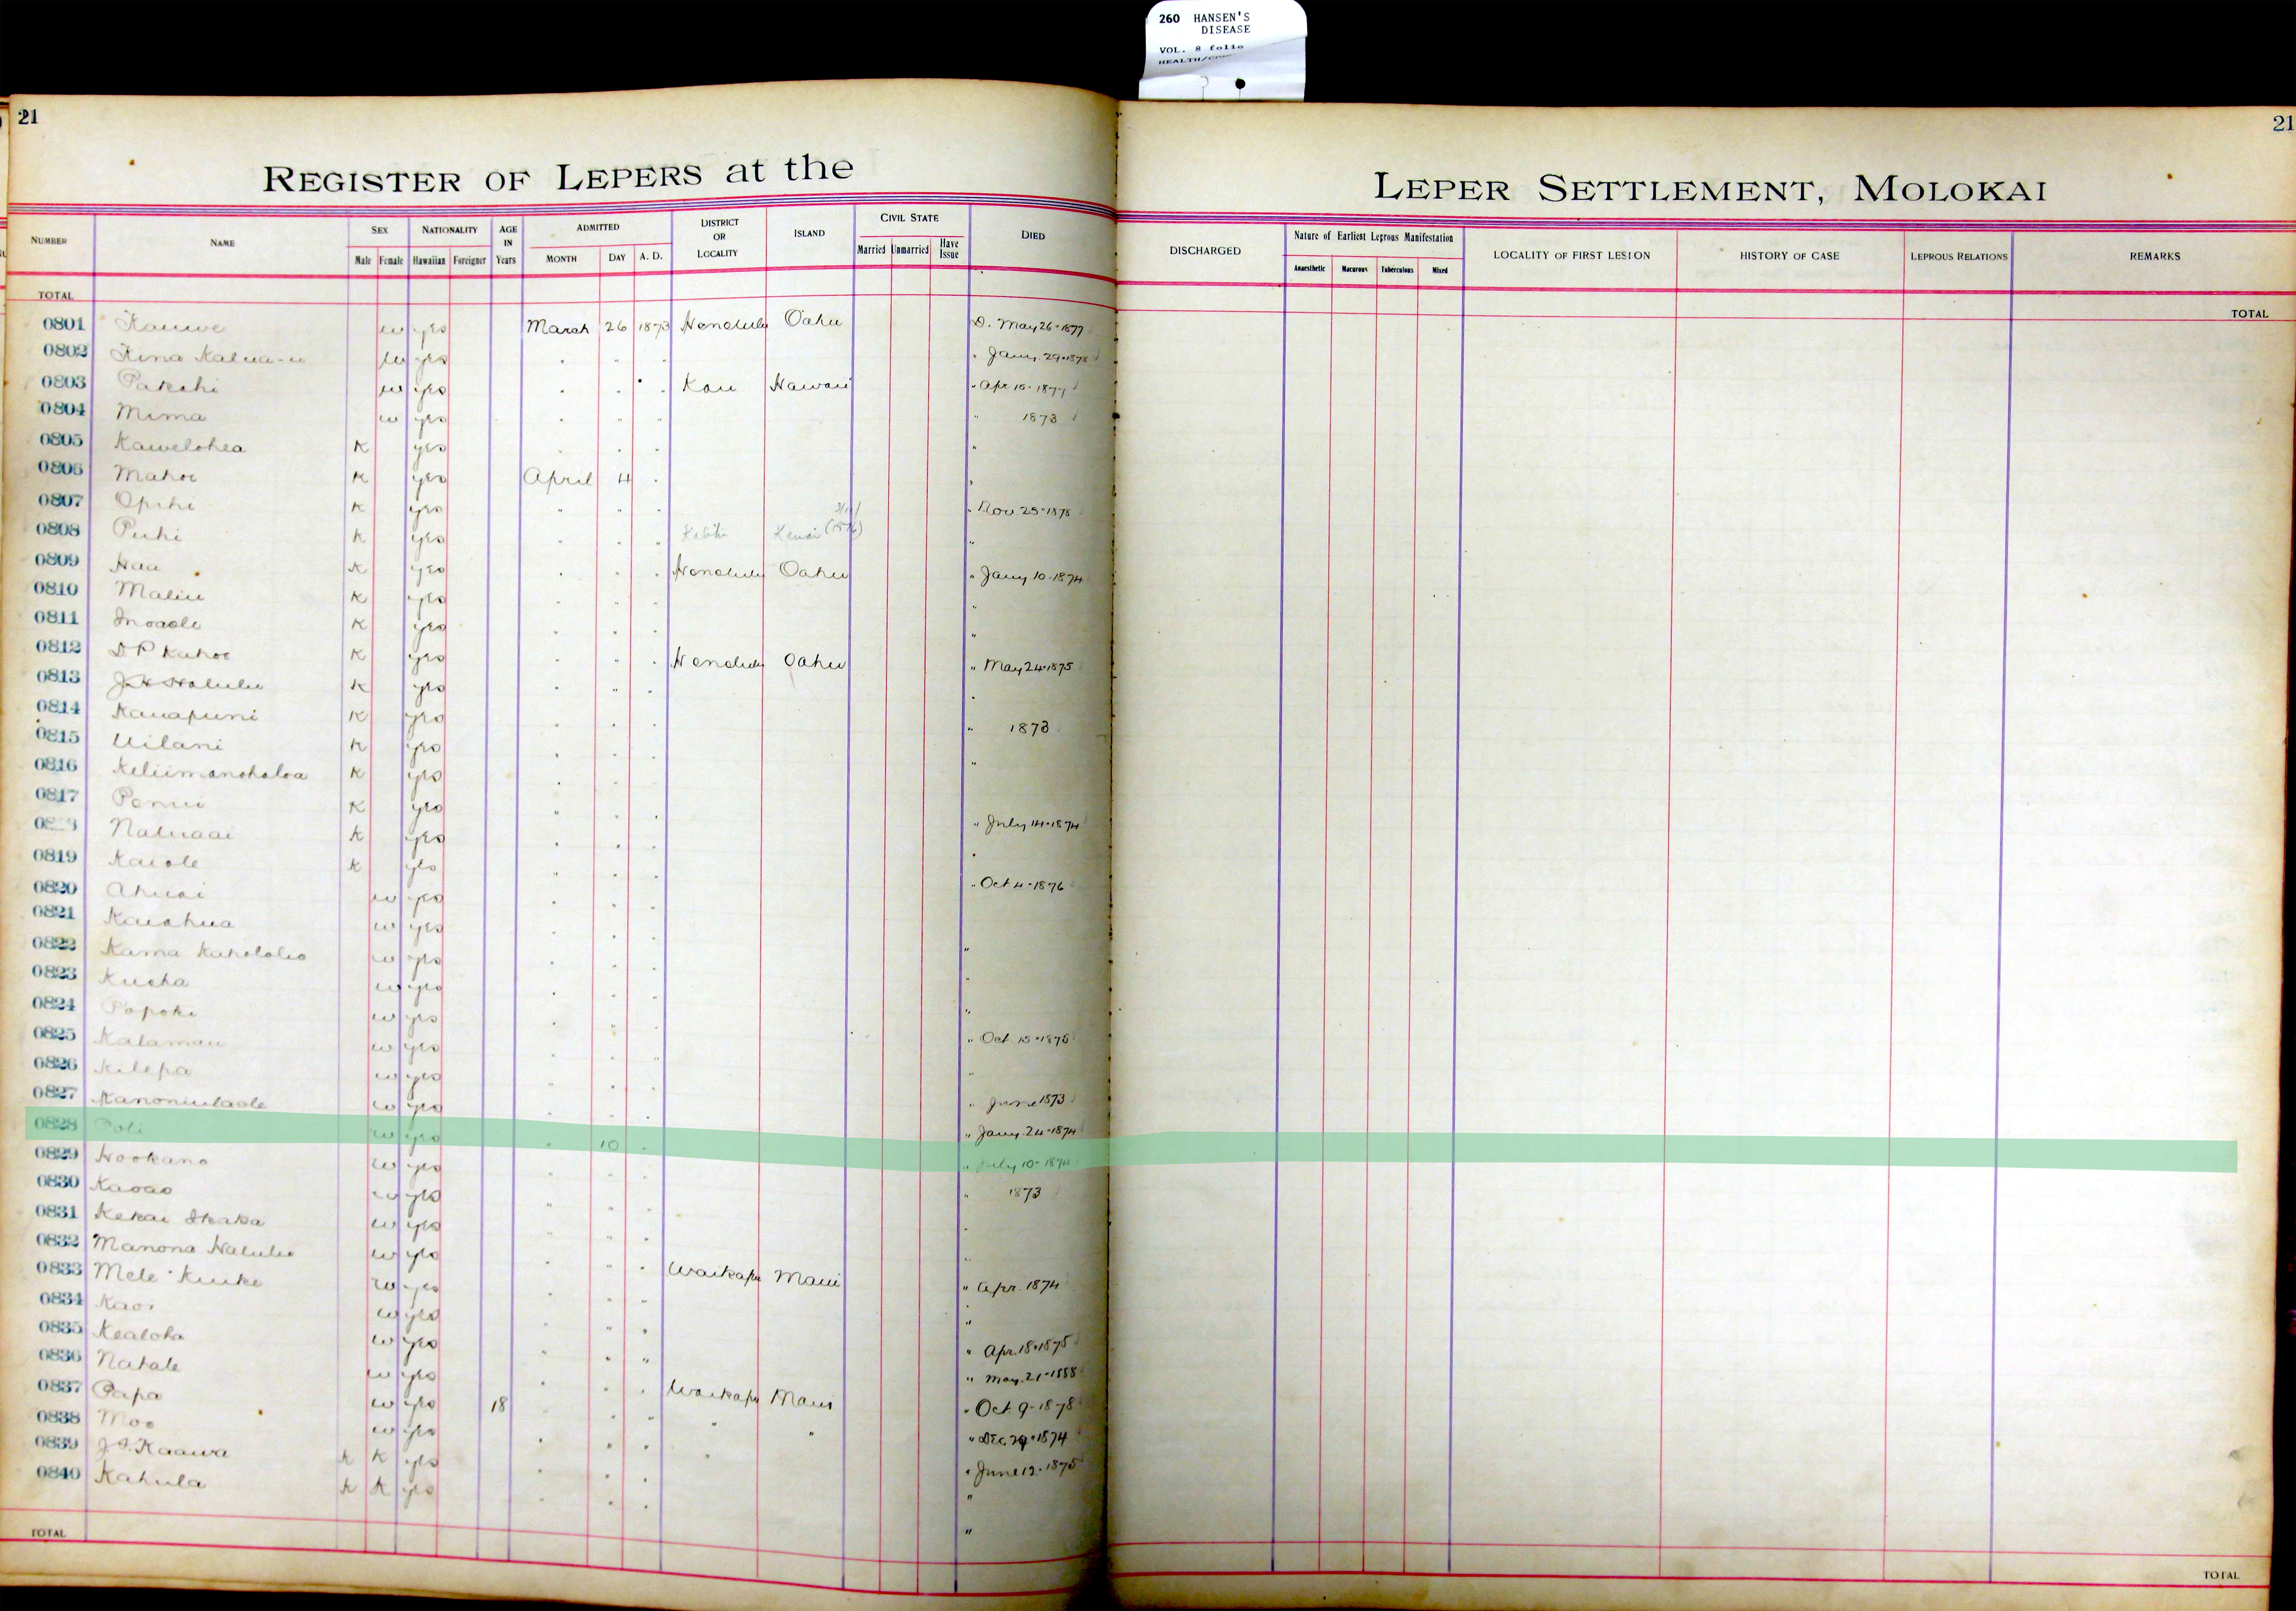 260 HANSEN'S
DISEASE
VOL. 8 folio
21
21
REGISTER OF LEPERS at the
LEPER SETTLEMENT, MOLOKAI
NUMBER NAME SEX NATIONALITY AGE IN Years ADMITTED DISTRICT OR LOCALITY ISLAND CIVIL STATE DIED DISCHARGED Nature of Earliest Leprous Manifestation LOCALITY OF FIRST LESION HISTORY OF CASE LEPROUS RELATIONS REMARKS
Male Female Hawaiian Foreigner MONTH DAY A. D. Married Unmarried Have Issue Anaesthetic Macurous Tuberculous Mixed
TOTAL
TOTAL
0801 Kauwe w yes March 26 1873 Honolulu Oahu D. May 26-1877
0802 Kina w yes " " " " Jany. 29-1878
0803 Pakahi w yes " " " Kau Hawaii " Apr 16-1877
0804 Mima w yes " " " " 1873
0805 Kawelohea K yes " " " "
0806 Mahoe K yes April 4 " "
0807 Opihi K yes " " " " Nov 25-1878
0808 Puhi K yes " " " Kauai (1876) "
0809 Hau K yes " " " Honolulu Oahu " Jany 10-1874
0810 Maliu K yes " " " "
0811 K yes " " " "
0812 Kahoe K yes " " " Honolulu Oahu " May 24-1875
0813 Halulu K yes " " " "
0814 Kauapuni K yes " " " " 1873
0815 Uilani K yes " " " "
0816 Keliimanohaloa K yes " " "
0817 Penui K yes " " " " July 14-1874
Naluaai K yes " " " "
0819 Kaiole K yes " " " " Oct 4-1876
0820 Ahuai w yes " " "
0821 Kauahua w yes " " " "
0822 Kama Kahololio w yes " " " "
0823 Kueha w yes " " " "
0824 Popoki w yes " " " " Oct. 15-1875
0825 Kalamau w yes " " " "
0826 Kilepa w yes " " " " June 1873
0827 Kanoniulaole w yes " " " " Jany. 24-1874
0828 Poli w yes " 10 " " July 10-1874
0829 Hookano w yes " " " " 1873
0830 Kaoao w yes " " " "
0831 Kekai Ikaka w yes " " " "
0832 Manona Halulu w yes " " " Waikapu Maui " Apr. 1874
0833 Mele Kuike w yes " " " "
0834 Kaoi w yes " " " " Apr. 18-1875
0835 Kealoha w yes " " " " May. 21-1888
0836 Nahale w yes " " " Waikapu Maui " Oct. 9-1878
0837 Papa w yes 18 " " " " " " Dec. 29-1874
0838 Moo w yes " " " " " June 12-1875
0839 Kaawa K K yes " " " "
0840 Kahula K K yes " " " "
TOTAL
TOTAL